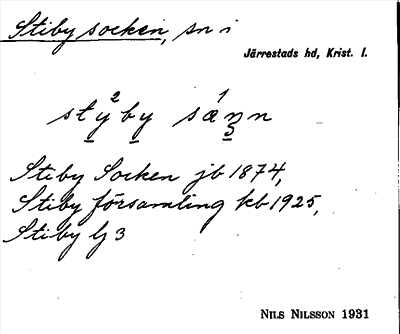 Stiby socken, sn i
Järrestads hd, Krist. l.
sty²by sǽn̠n
Stiby Socken jb 1874,
Stiby församling kb 1925,
Stiby lj 3
NILS NILSSON 1931